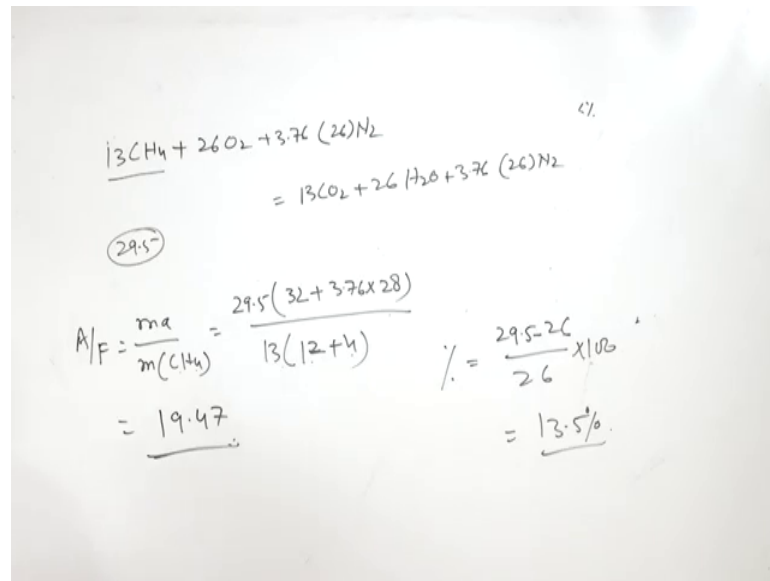 <%
13CH4 + 26O2 + 3.76 (26)N2
= 13CO2 + 26 H2O + 3.76 (26)N2
29.5
A/F = ma / m(CH4) = 29.5(32 + 3.76x28) / 13(12+4)
= 19.47
% = 29.5-26 / 26 x100
= 13.5%.